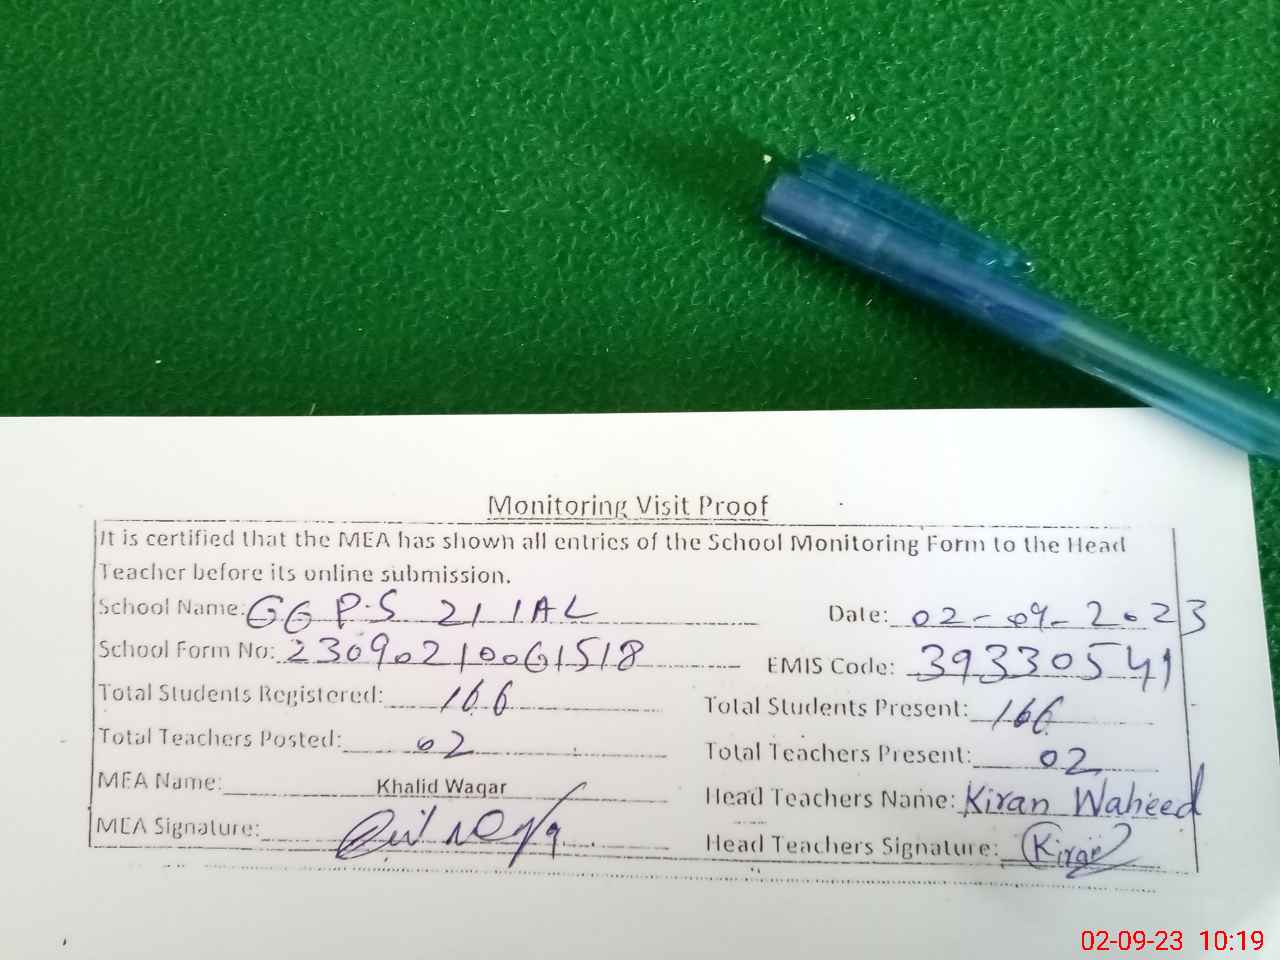 Monitoring Visit Proof
It is certified that the MEA has shown all entries of the School Monitoring Form to the Head
Teacher before its online submission.
School Name: GGPS 21 1AL Date: 02-09-2023
School Form No: 23090210061518 EMIS Code: 39330541
Total Students Registered: 166 Total Students Present: 166
Total Teachers Posted: 02 Total Teachers Present: 02
MEA Name: Khalid Waqar Head Teachers Name: Kiran Waheed
MEA Signature: Head Teachers Signature: Kiran
02-09-23 10:19